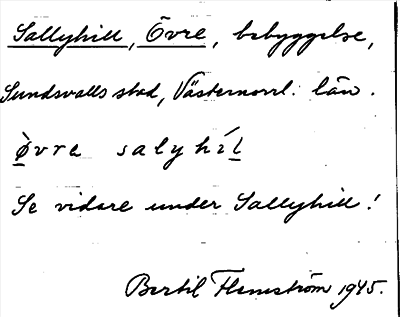 Sallyhill, Övre, bebyggelse,
Sundsvalls stad, Västernorrl. län.
Øvre salyhil
Se vidare under Sallyhill!
Bertil Flemström 1945.